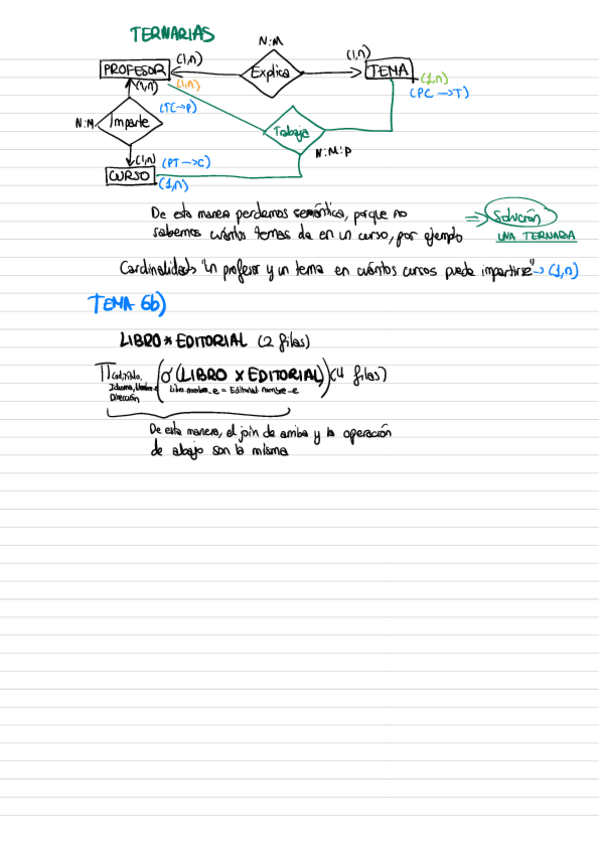 TERNARIAS
N:M
(1,n)
(1,n)
PROFESOR
Explica
TEMA
(1,n)
(1,n)
(1,n)
(PC→T)
(TC→P)
N:M
Imparte
Trabaja
N:M:P
(1,n)
(PT→C)
CURSO
(1,n)
De esta manera perdemos semántica, porque no
sabemos cuántos temas da en un curso, por ejemplo
⇒ Solución
UNA TERNARIA
Cardinalidad → "Un profesor y un tema en cuántos cursos puede impartirse" → (1,n)
TEMA 6b)
LIBRO * EDITORIAL (2 filas)
∏ Cod, Título, Idioma, Nombre_e Dirección (σ (LIBRO X EDITORIAL)) (4 filas)
Libro.nombre_e = Editorial.nombre_e
De esta manera, el join de arriba y la operación
de abajo son la misma